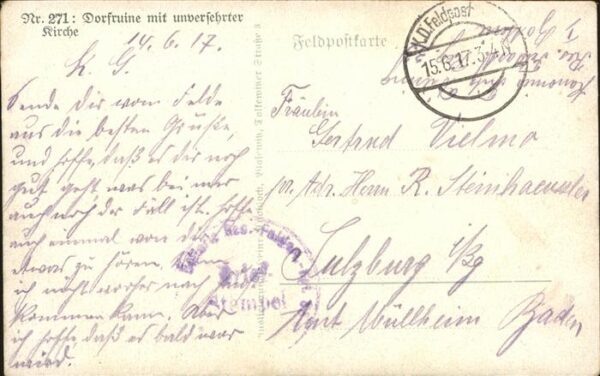 Nr. 271: Dorfruine mit unversehrter
Kirche
14.6.17.
L. G.
Sende Dir vom Felde
aus die besten Grüße,
und hoffe, daß es dir noch
gut geht was bei mir
auch noch der Fall ist. Hoffe
auch einmal von dir
etwas zu hören.
ich nicht vorher nach Haus
kommen kann. Aber
ich hoffe, daß es bald war
wird.
Feldpostkarte
K.D. Feldpost
15.6.17. 3-4 N
Kanonier
Fräulein
Gertrud Vielmo
pr. Adr. Herrn R. Steinhaeussler
Sulzburg i/Bg
Amt Müllheim Baden
Brief
Stempel